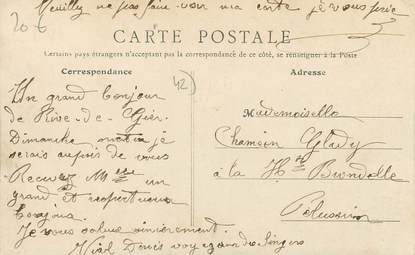 Veuilly ne pas faire voir ma carte je vous prie
20 6
CARTE POSTALE
Certains pays étrangers n'acceptant pas la correspondance de ce côté, se renseigner à la Poste
Correspondance
Adresse
42
Un grand bonjour
de Rive-de-Gier.
Dimanche matin je
serais de vous
Recevez Mlle un
grand et respectueux
bonjour.
Je vous salue sincèrement.
Denis voyageur des
Mademoiselle
Chamoin Glady
à la Hte
Pélussin